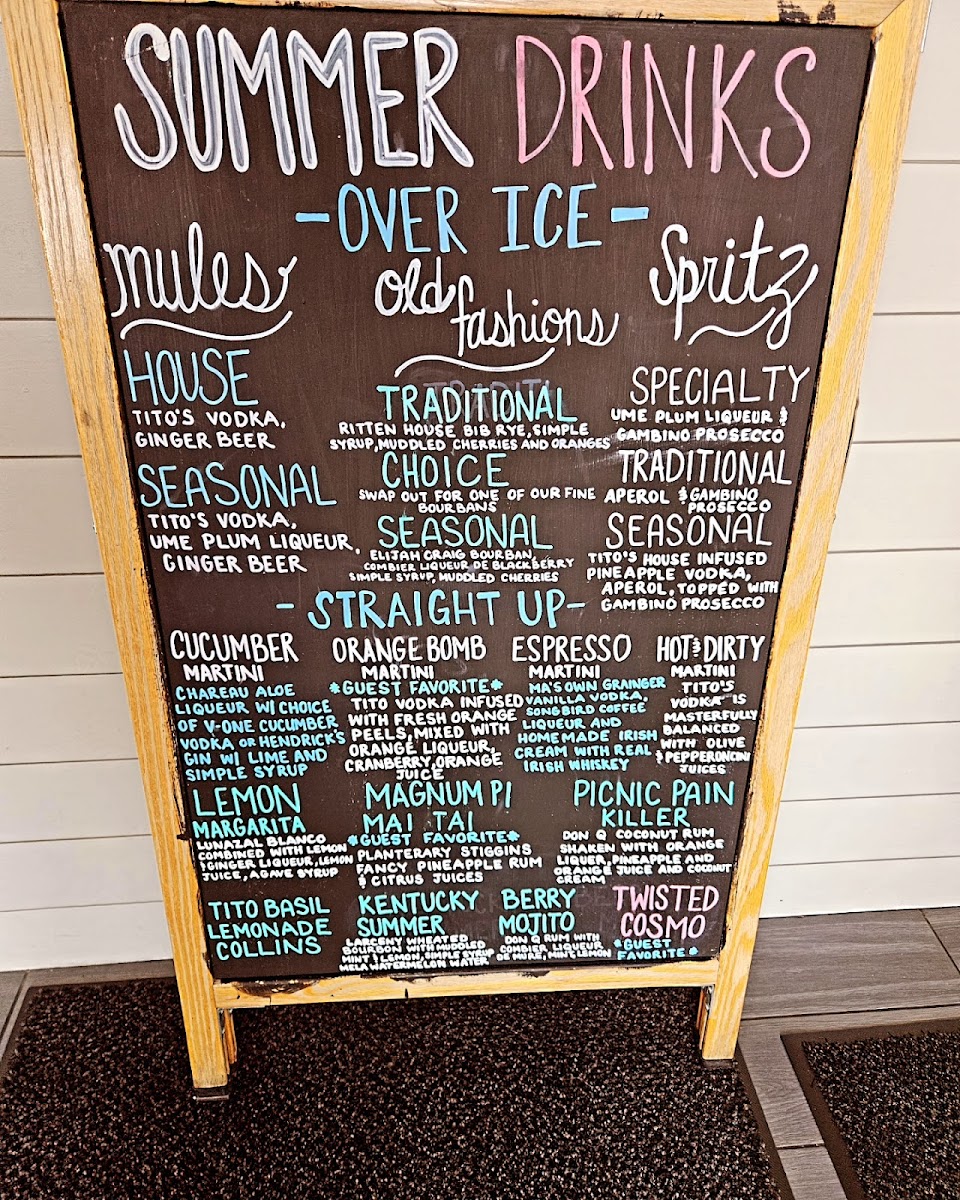 SUMMER DRINKS
-OVER ICE-
mules
HOUSE
TITO'S VODKA,
GINGER BEER
SEASONAL
TITO'S VODKA,
UME PLUM LIQUEUR,
GINGER BEER
Old
fashions
TRADITIONAL
RITTEN HOUSE BIB RYE, SIMPLE
SYRUP, MUDDLED CHERRIES AND ORANGES
CHOICE
SWAP OUT FOR ONE OF OUR FINE
BOURBANS
SEASONAL
ELIJAH CRAIG BOURBAN,
COMBIER LIQUEUR DE BLACKBERRY
SIMPLE SYRUP, MUDDLED CHERRIES
Spritz
SPECIALTY
UME PLUM LIQUEUR &
GAMBINO PROSECCO
TRADITIONAL
APEROL & GAMBINO
PROSECCO
SEASONAL
TITO'S HOUSE INFUSED
PINEAPPLE VODKA,
APEROL, TOPPED WITH
GAMBINO PROSECCO
- STRAIGHT UP-
CUCUMBER
MARTINI
CHAREAU ALOE
LIQUEUR W/ CHOICE
OF V-ONE CUCUMBER
VODKA OR HENDRICK'S
GIN W/ LIME AND
SIMPLE SYRUP
ORANGE BOMB
MARTINI
*GUEST FAVORITE*
TITO VODKA INFUSED
WITH FRESH ORANGE
PEELS, MIXED WITH
ORANGE LIQUEUR,
CRANBERRY, ORANGE
JUICE
ESPRESSO
MARTINI
MA'S OWN GRAINGER
VANILLA VODKA,
SONGBIRD COFFEE
LIQUEUR AND
HOMEMADE IRISH
CREAM WITH REAL
IRISH WHISKEY
HOT & DIRTY
MARTINI
TITO'S
VODKA IS
MASTERFULLY
BALANCED
WITH OLIVE
& PEPPERONCINI
JUICES
LEMON
MARGARITA
LUNAZAL BLANCO
COMBINED WITH LEMON
& GINGER LIQUEUR, LEMON
JUICE, AGAVE SYRUP
MAGNUM PI
MAI TAI
*GUEST FAVORITE*
PLANTERARY STIGGINS
FANCY PINEAPPLE RUM
& CITRUS JUICES
PICNIC PAIN
KILLER
DON Q COCONUT RUM
SHAKEN WITH ORANGE
LIQUER, PINEAPPLE AND
ORANGE JUICE AND COCONUT
CREAM
TITO BASIL
LEMONADE
COLLINS
KENTUCKY
SUMMER
LARCENY WHEATED
BOURBON WITH MUDDLED
MINT & LEMON, SIMPLE SYRUP
MELA WATERMELON WATER
BERRY
MOJITO
DON Q RUM WITH
COMBIER LIQUEUR
DE MURE, MINT, LEMON
TWISTED
COSMO
*GUEST
FAVORITE*